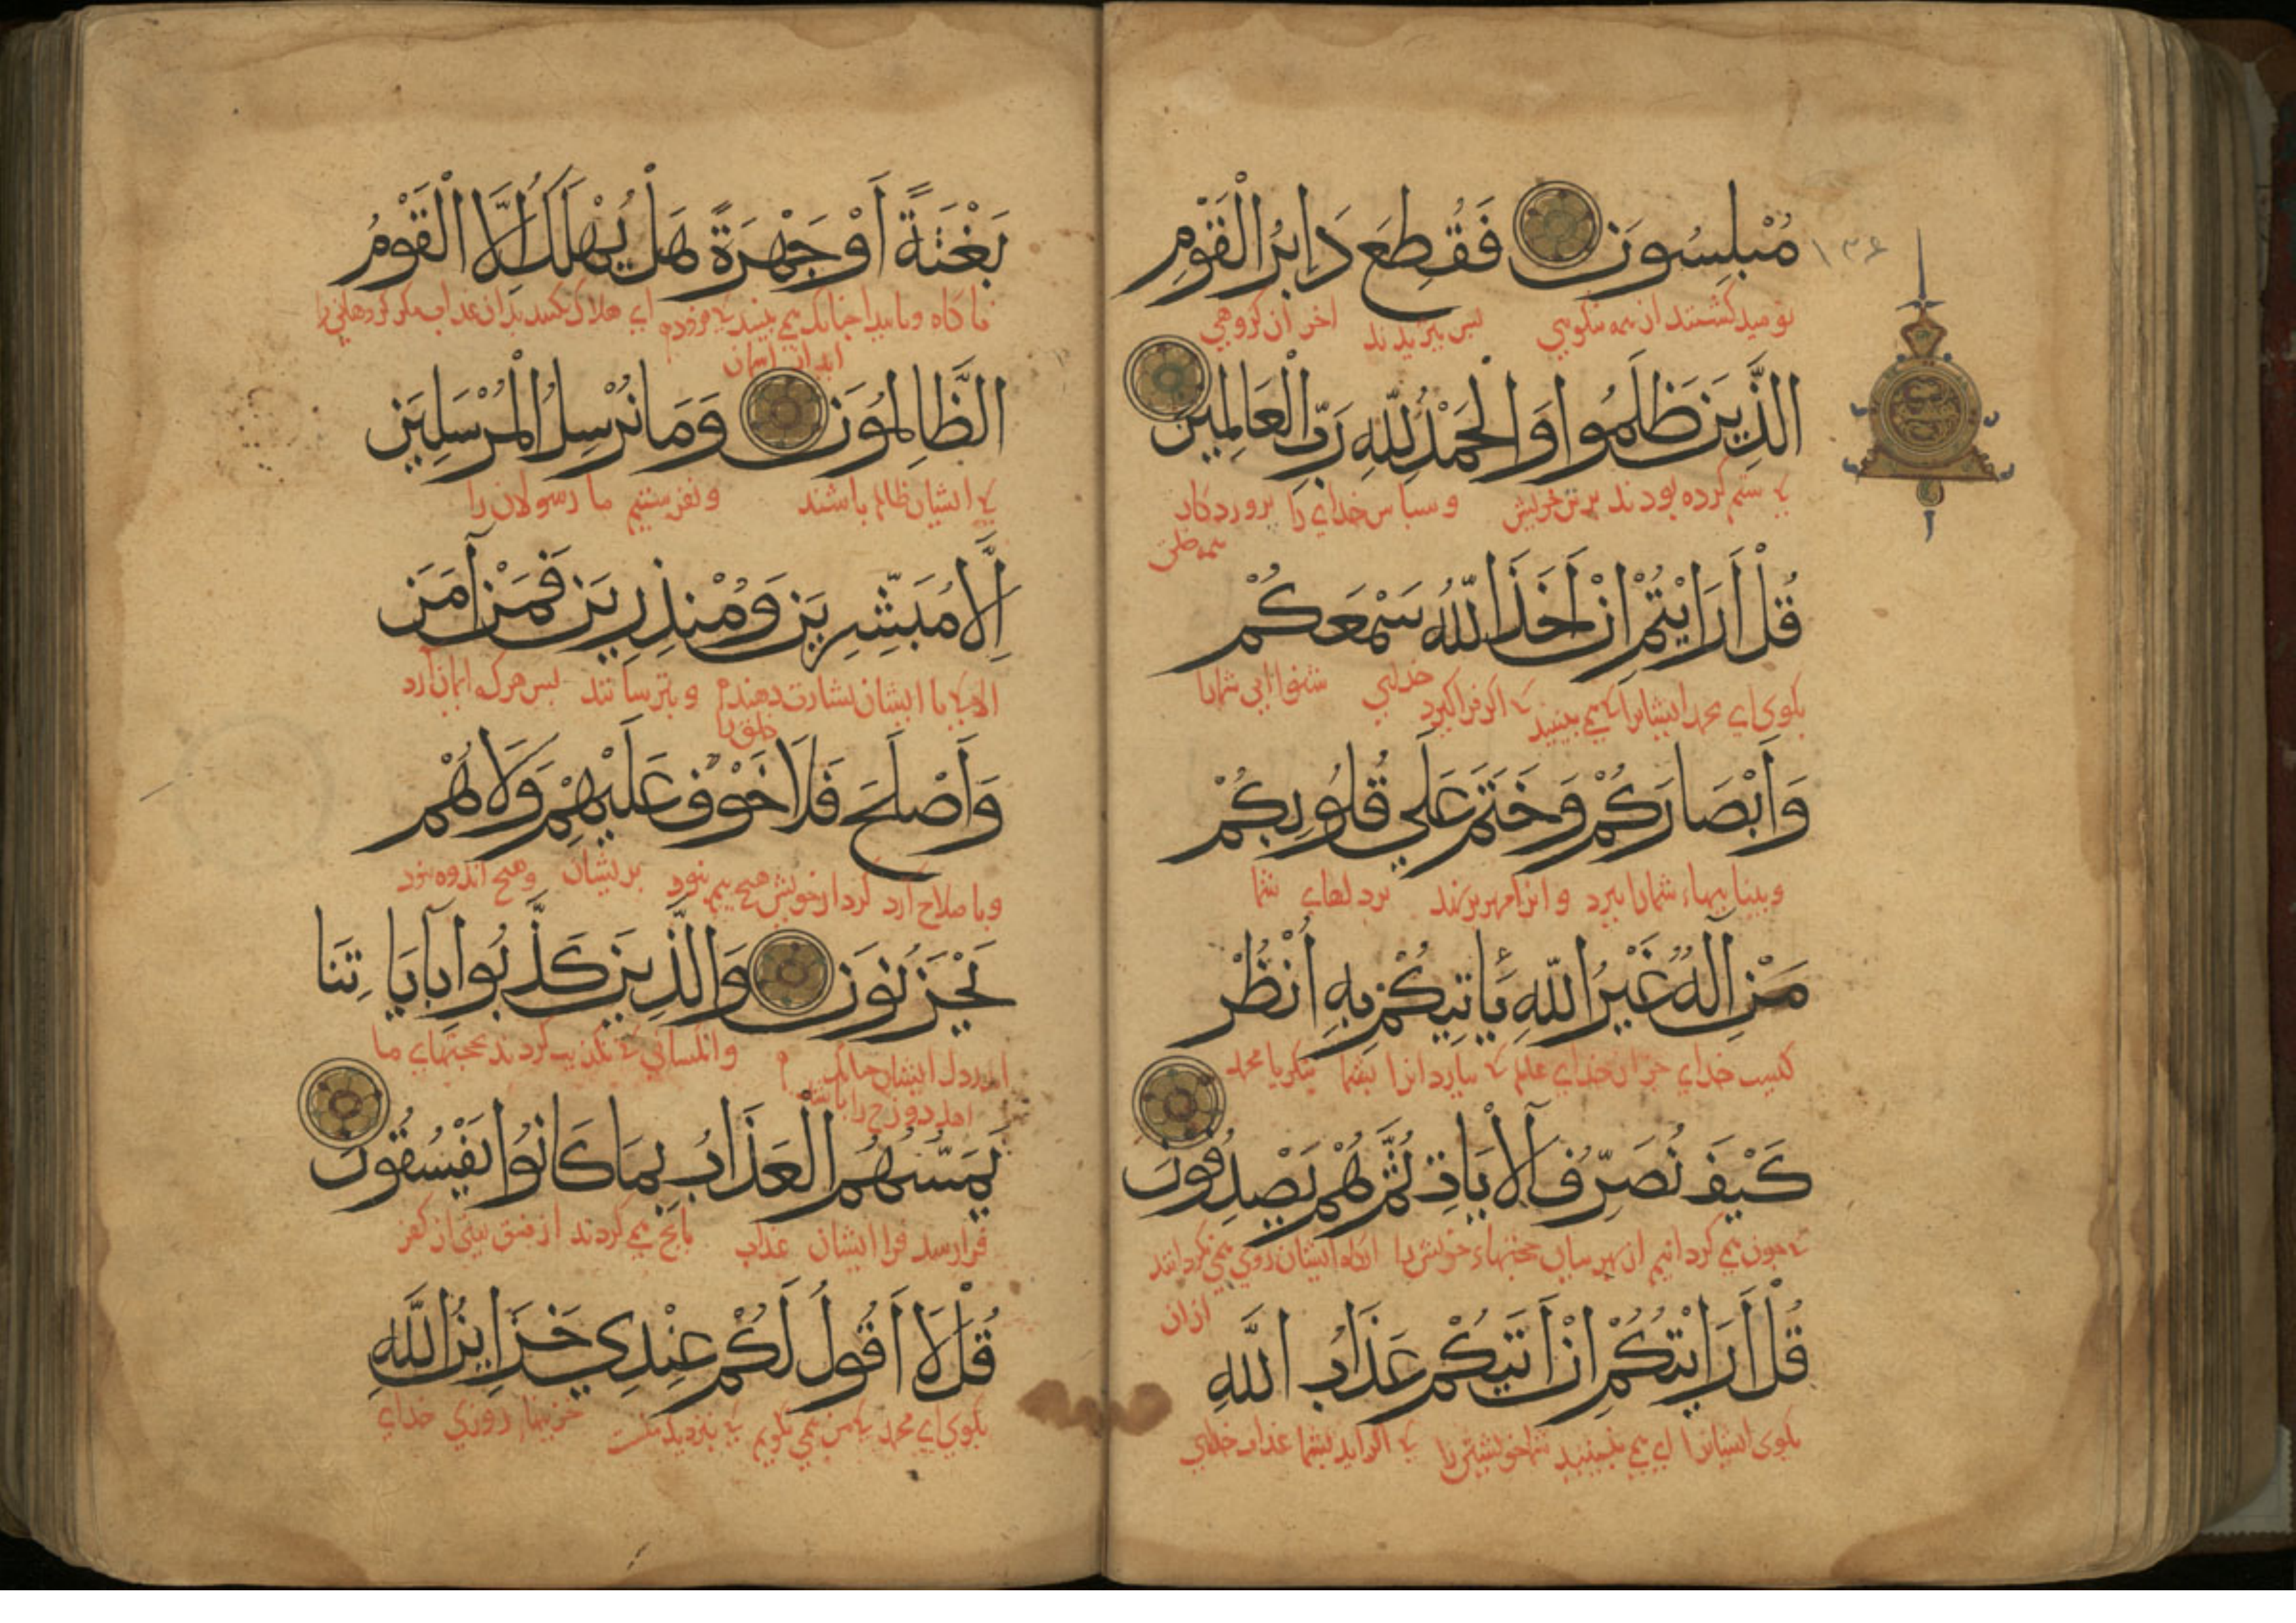 مُبْلِسُونَ فَقُطِعَ دَابِرُ الْقَوْمِ
نومید گشتند از همه نیکویی پس ببریدند آخر آن گروهی
الَّذِينَ ظَلَمُوا وَالْحَمْدُ لِلَّهِ رَبِّ الْعَالَمِينَ
که ستم کرده بودند بر تن خویش و سپاس خدای را پروردگار
همه خلق
قُلْ أَرَايْتُمْ إِنْ أَخَذَ اللَّهُ سَمْعَكُمْ
بکوی ای محمد ایشانرا که می بینید که اگر فراگیرد خدای شنوایی شمارا
وَأَبْصَارَكُمْ وَخَتَمَ عَلَي قُلُوبِكُمْ
و بیناییهاء شمارا ببرد و انرا مهر برنهد بر دلهاي شما
مَنْ إِلَهٌ غَيْرُ اللَّهِ يَأْتِيكُمْ بِهِ أُنْظُرْ
کیست خدای جز از خدای عالم که بیارد انرا بشما بنکر یا محمد
كَيْفَ نُصَرِّفُ الْآيَاتِ ثُمَّ هُمْ يَصْدِفُونَ
که چون می گردانیم از بهر بیان حجتهاء خویش را انکاه ایشان روی می گردانند
از ان
قُلْ أَرَايْتَكُمْ إِنْ أَتَيكُمْ عَذَابُ اللَّهِ
بکوی ایشانرا که می بینید شما خویشتن را که اگر اید بشما عذاب خدای
۱۳۶
بَغْتَةً أَوْ جَهْرَةً هَلْ يُهْلَكُ إِلَّا الْقَوْمُ
ناکاه و یا پیدا چنانک می بینید ای هلاک کنند بدان عذاب مکر گروهانی را
الظَّالِمُونَ وَمَا نُرْسِلُ الْمُرْسَلِينَ
که ایشان ظالم باشند و نفرستیم ما رسولان را
إِلَّا مُبَشِّرِينَ وَمُنْذِرِينَ فَمَنْ آمَنَ
الا که تا ایشان بشارت دهند و بترسانند پس هرکه ایمان آرد
خلق را
وَأَصْلَحَ فَلَا خَوْفٌ عَلَيْهِمْ وَلَا هُمْ
و با صلاح آرد کردار خویش هیچ بیم نبود بریشان و هیچ اندوه نبود
يَحْزَنُونَ وَالَّذِينَ كَذَّبُوا بِآيَاتِنَا
اندر دل ایشان و انکسانی که تکذیب کردند بحجتهای ما
اهل دوزخ را باشد
يَمَسُّهُمُ الْعَذَابُ بِمَا كَانُوا يَفْسُقُونَ
فرا رسد فرا ایشان عذاب بانچ می کردند از فسق یعنی از کفر
قُلْ لَا أَقُولُ لَكُمْ عِنْدِي خَزَايِنُ اللَّهِ
بکوی ای محمد که من نمی گویم که بنزدیک منست خزینهاء روزی خدای